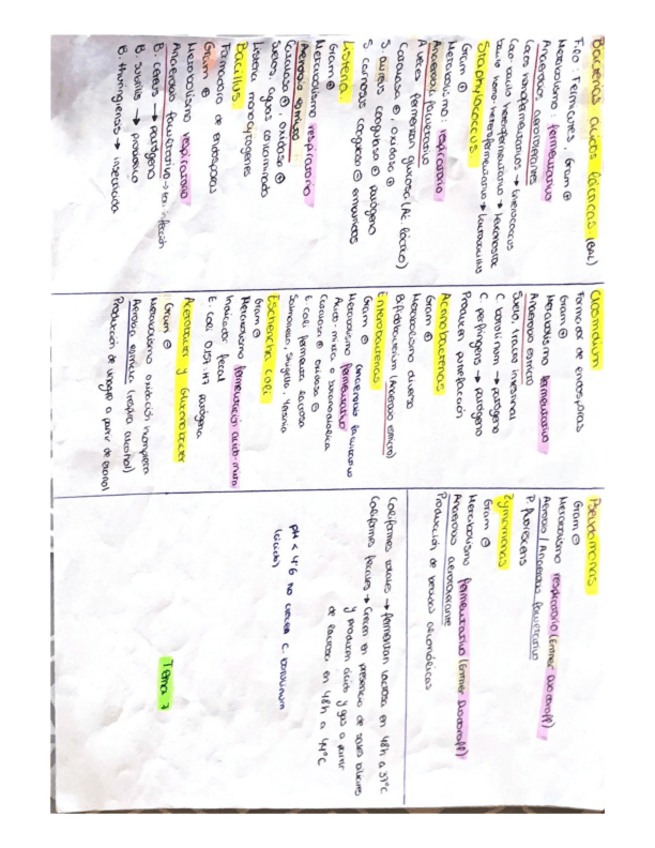 Bacterias ácido lácticas (BAL)
Filo: Firmicutes, Gram ⊕
Metabolismo: fermentativo
Anaerobios aerotolerantes
Cocos homofermentativos → Enterococcus
Coco-bacilo heterofermentativo → Leuconostoc
Bacilo homo-heterofermentativo → Lactobacillus
Staphylococcus
Gram ⊕
Metabolismo: respiratorio
Anaerobio facultativo
A veces fermentan glucosa (Ác láctico)
Catalasa ⊕, oxidasa ⊖
S. aureus coagulasa ⊕ patógeno
S. carnosus coagulasa ⊖ embutidos
Listeria
Gram ⊕
Metabolismo respiratorio
Aerobio estricto
Catalasa ⊕, oxidasa ⊖
Suelos, aguas contaminada
Listeria monocytogenes
Bacillus
Formadora de endosporas
Gram ⊕
Metabolismo respiratorio
Anaerobio facultativo → infección
B. cereus → patógeno
B. subtilis → probiótico
B. thuringiensis → insecticida
Clostridium
Formador de endosporas
Gram ⊕
Metabolismo fermentativo
Anaerobio estricto
Suelo, tracto intestinal
C. botulinum → patógeno
C. perfringens → patógeno
Producen putrefacción
Actinobacterias
Gram ⊕
Metabolismo diverso
Bifidobacterium (Anaerobio estricto)
Enterobacterias
Gram ⊖ Anaerobio facultativo
Metabolismo fermentativo
Ácido-mixta o butanodiólica
Catalasa ⊕ oxidasa ⊖
E. coli fermenta lactosa
Salmonella, Shigella, Yersinia
Escherichia coli
Gram ⊖
Metabolismo fermentación ácido-mixta
Indicador fecal
E. coli O157:H7 patógena
Acetobacter y Gluconobacter
Gram ⊖
Metabolismo oxidación incompleta
Aerobio estricto (respira alcohol)
Producción de vinagre a partir de etanol
Pseudomonas
Gram ⊖
Metabolismo respiratorio (Entner Duodoroff)
Aerobio / Anaerobio facultativo
P. fluorescens
Zymomonas
Gram ⊖
Metabolismo fermentativo (Entner Duodoroff)
Anaerobio aerotolerante
Producción de bebidas alcohólicas
Coliformes totales → fermentan lactosa en 48h a 37°C
Coliformes fecales → Crecen en presencia de sales biliares
y producen ácido y gas a partir
de lactosa en 48h a 44°C
pH < 4'6 no crece C. botulinum
(ácido)
Tema 7